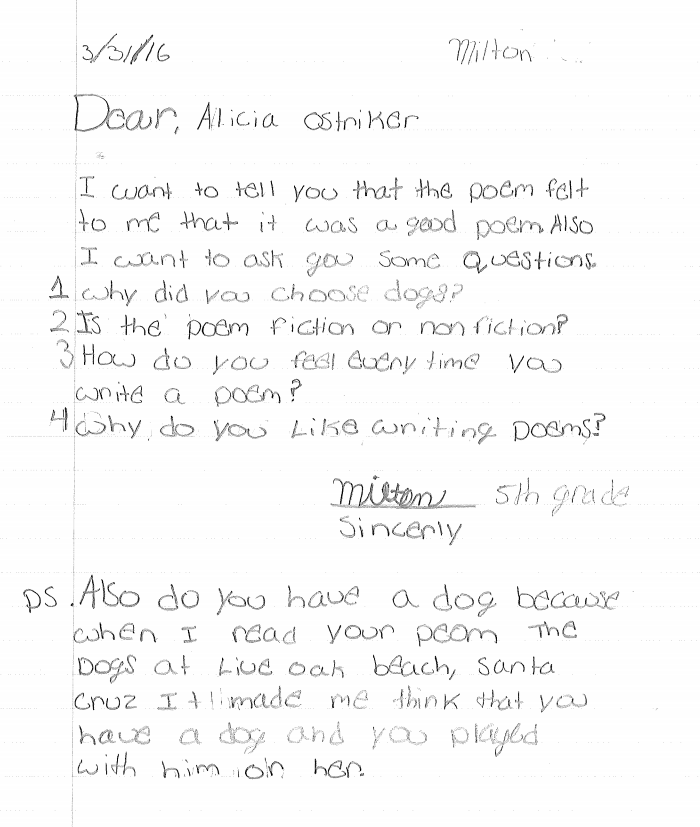 3/31/16 Milton
Dear, Alicia Ostriker
I want to tell you that the poem felt
to me that it was a good poem. Also
I want to ask you some questions.
1 Why did you choose dogs?
2 Is the poem fiction or nonfiction?
3 How do you feel every time you
write a poem?
4 Why do you Like writing poems?
Milton 5th grade
Sincerly
PS. Also do you have a dog because
when I read your peom The
Dogs at Live oak beach, Santa
Cruz It made me think that you
have a dog and you played
with him or her.